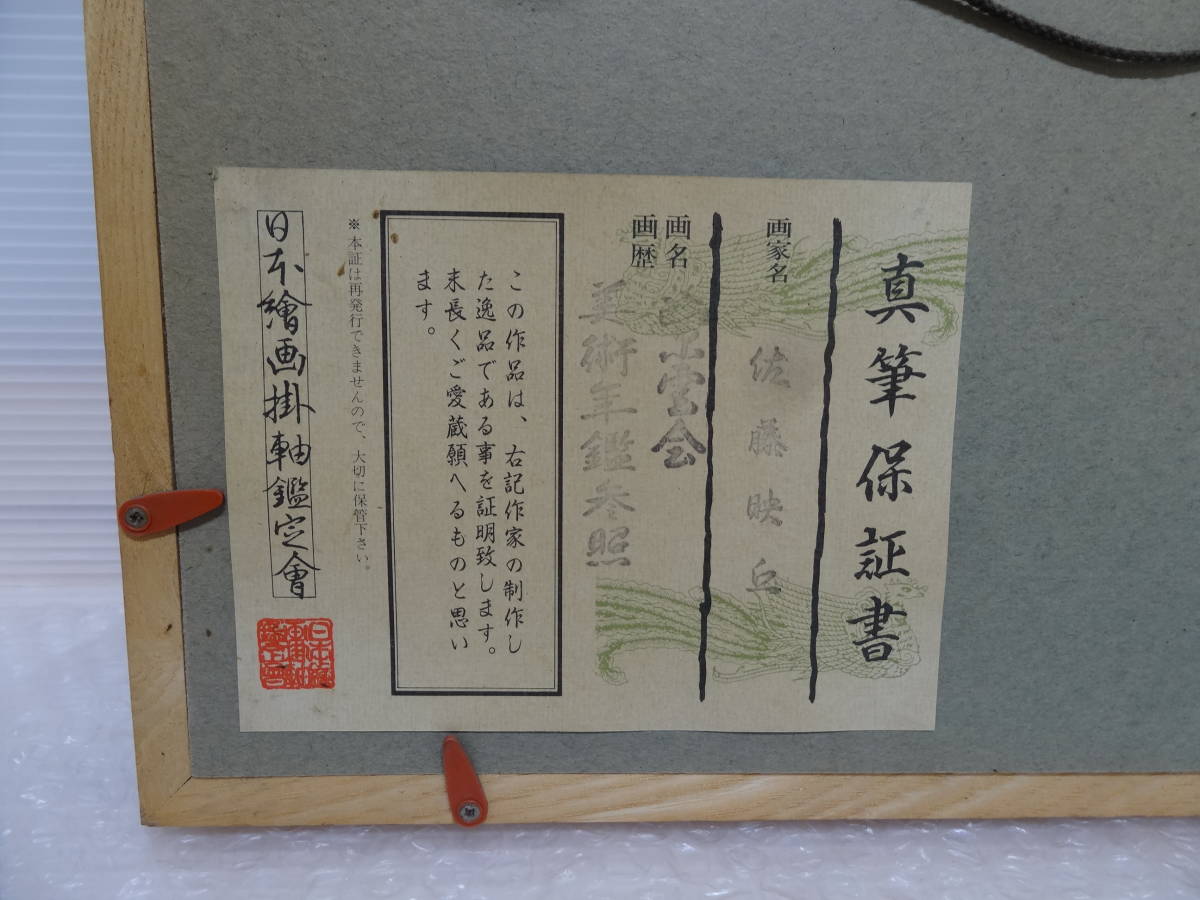 真筆保証書
画家名
佐藤映丘
画名
会
画歴
美術年鑑参照
この作品は、右記作家の制作し
た逸品である事を証明致します。
末長くご愛蔵願へるものと思い
ます。
※本証は再発行できませんので、大切に保管下さい。
日本繪画掛軸鑑定會